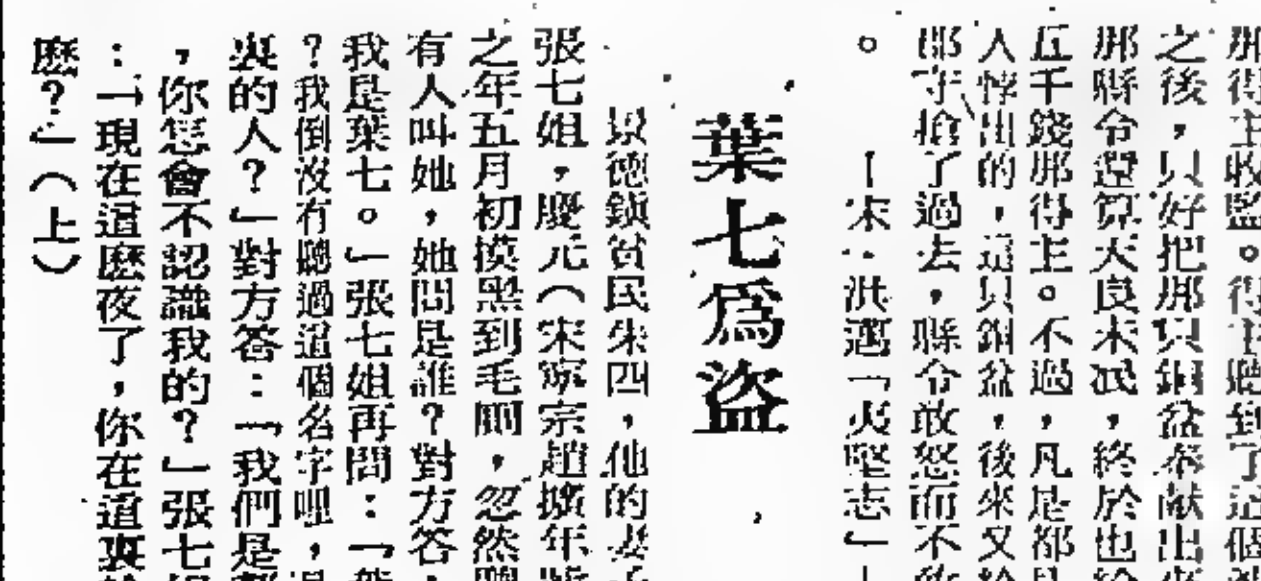 那得主收監。得主聽到了這個
之後，只好把那只銅盆奉献出
那縣令還算天良未泯，終於也
五千錢那得主。不過，凡是都
人悖出的，這只銅盆，後來又
郡守搶了過去，縣令敢怒而不
。　—宋·洪邁「夷堅志」—
葉七爲盜
景德鎮貧民朱四，他的妻
張七姐，慶元（宋寧宗趙擴年
之年五月初摸黑到毛厠，忽然
有人叫她，她問是誰？對方答
我是葉七。」張七姐再問：「
？我倒沒有聽過這個名字哩，
裏的人？」對方答：「我們是
，你怎會不認識我的？」張七
：「現在這麽夜了，你在這裏
麽？」（上）